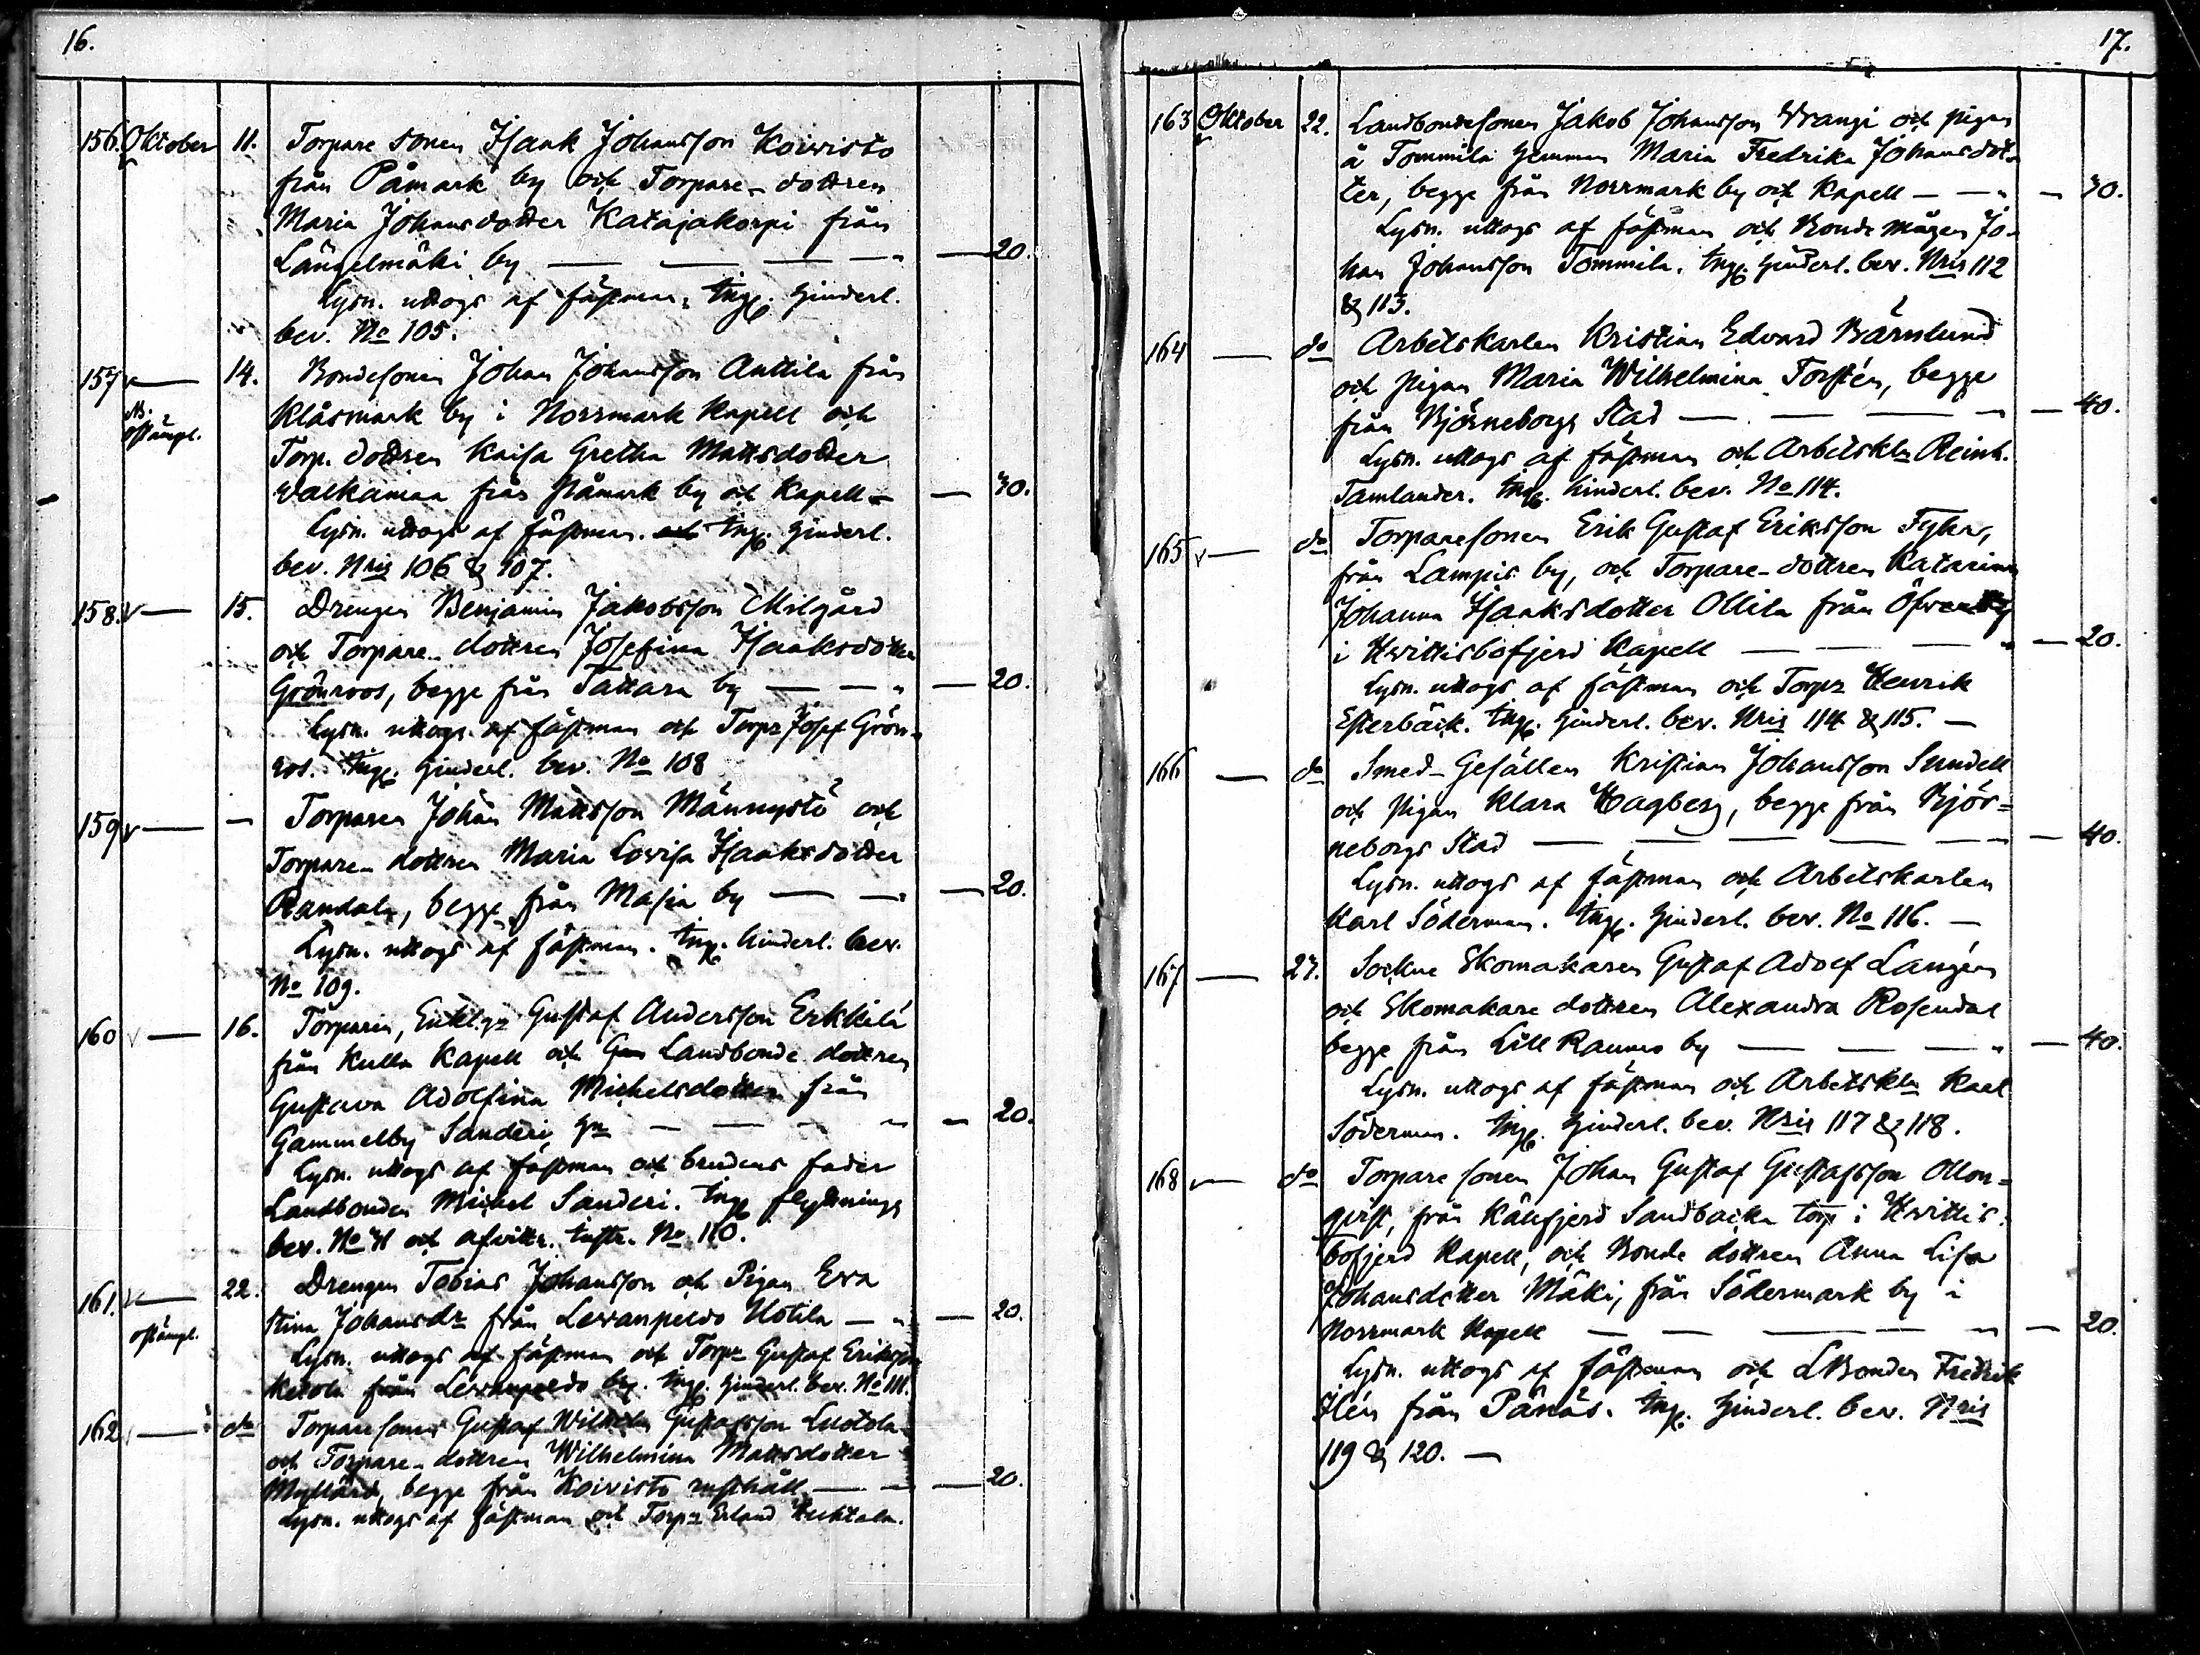 16.
156. Oktober 11. Torpare sonen Isaak Johansson Koivisto
från Påmark by och Torpare-dottren
Maria Johansdotter Katajakorpi från
Längelmäki by — — — " — 20.
Lysn. uttogs af fästman. Ing. hinderl.
bev. No 105.
157 — 14. Bondesonen Johan Johansson Anttila från
Klåsmark by i Norrmark Kapell och
ostämpl.
Torp. dottren Kaisa Gretha Mattsdotter
Walkamaa från Påmark by och Kapell — — 40.
Lysn. uttogs af fästman. och Ing. hinderl.
bev. Nris 106 & 107.
158. — 15. Drengen Benjamin Jakobsson Milgård
och Torpare-dottren Josefina Isaaksdotter
Grönroos, begge från Tattara by — — " — 20.
Lysn. uttogs af fästman och Torpr Josef Grön-
ros. Ing. hinderl. bev. No 108
159 — — Torparen Johan Mattsson Männystö och
Torpare-dottren Maria Lovisa Isaaksdotter
Randala, begge från Masia by — — — 20.
Lysn. uttogs af fästman. Ing. hinderl. bev.
No 109.
160 — 16. Torparen, Enkl.gn Gustaf Andersson Erkkilä
från Kulla Kapell och Landbonde dottren
Gustava Adolfina Michelsdotter från
Gammelby Sanderi gn — — — " — 20.
Lysn. uttogs af fästman och brudens fader
Landbonden Michel Sanderi. Ing. flyttnings
bev. No 41 och afvittr. instr. No 110.
161. — 22. Drengen Tobias Johansson och Pigan Eva
ostämpl.
Stina Johansdr från Levanpeldo Uotila — " — 20.
Lysn. uttogs af fästman och Torpr Gustaf Eriksson
Ketola från Levanpeldo by. Ing. hinderl. bev. No 111.
162 — do Torparesonen Gustaf Wilhelm Gustafsson Luotola
och Torpare-dottren Wilhelmina Mattsdotter
Myllärä, begge från Koivisto rusthåll — — — 20.
Lysn. uttogs af fästman och Torpr Erland Huhtala.
17.
163 Oktober 22. Landbondesonen Jakob Johansson Wrangi och pigan
å Tommila hemman Maria Fredrika Johansdot-
ter, begge från Norrmark by och Kapell — — " — 40.
Lysn. uttogs af fästman och Bonde mågen Jo-
han Johansson Tommila. Ing. hinderl. bev. Nris 112
& 113.
164 — do Arbetskarlen Kristian Edvard Bärnlund
och pigan Maria Wilhelmina Torstén, begge
från Björneborgs Stad — — — " — 40.
Lysn. uttogs af fästman och Arbetskln Reinh.
Tamlander. Ing. hinderl. bev. No 114.
165 — do Torparesonen Erik Gustaf Eriksson Fyhr,
från Lampis by, och Torpare-dottren Katarina
Johanna Isaaksdotter Ollila från Öfverby
i Hvittisbofjerd Kapell — — — " — 20.
Lysn. uttogs af fästman och Torpr Henrik
Esterbäck. Ing. hinderl. bev. Nris 114 & 115. —
166 — do Smed-Gesällen Kristian Johansson Sundell
och pigan Klara Hagberg, begge från Björ-
neborgs Stad — — — — — — 40.
Lysn. uttogs af fästman och Arbetskarlen
Karl Söderman. Ing. hinderl. bev. No 116. —
167 — 27. Sockne Skomakaren Gustaf Adolf Langén
och Skomakare dottren Alexandra Rosendal
begge från Lill Raumo by — — — " — 40.
Lysn. uttogs af fästman och Arbetskln Karl
Söderman. Ing. hinderl. bev. Nris 117 & 118.
168 — do Torpare sonen Johan Gustaf Gustafsson Ollon-
qvist, från Kåefjerd Sandbacka torp i Hvittis-
bofjerd Kapell, och Bonde dottren Anna Lisa
Johansdotter Mäki, från Södermark by i
Norrmark Kapell — — — — — — 20.
Lysn. uttogs af fästman och LBonden Fredrik
Ilén från Pänäs. Ing. hinderl. bev. Nris
119 & 120. —